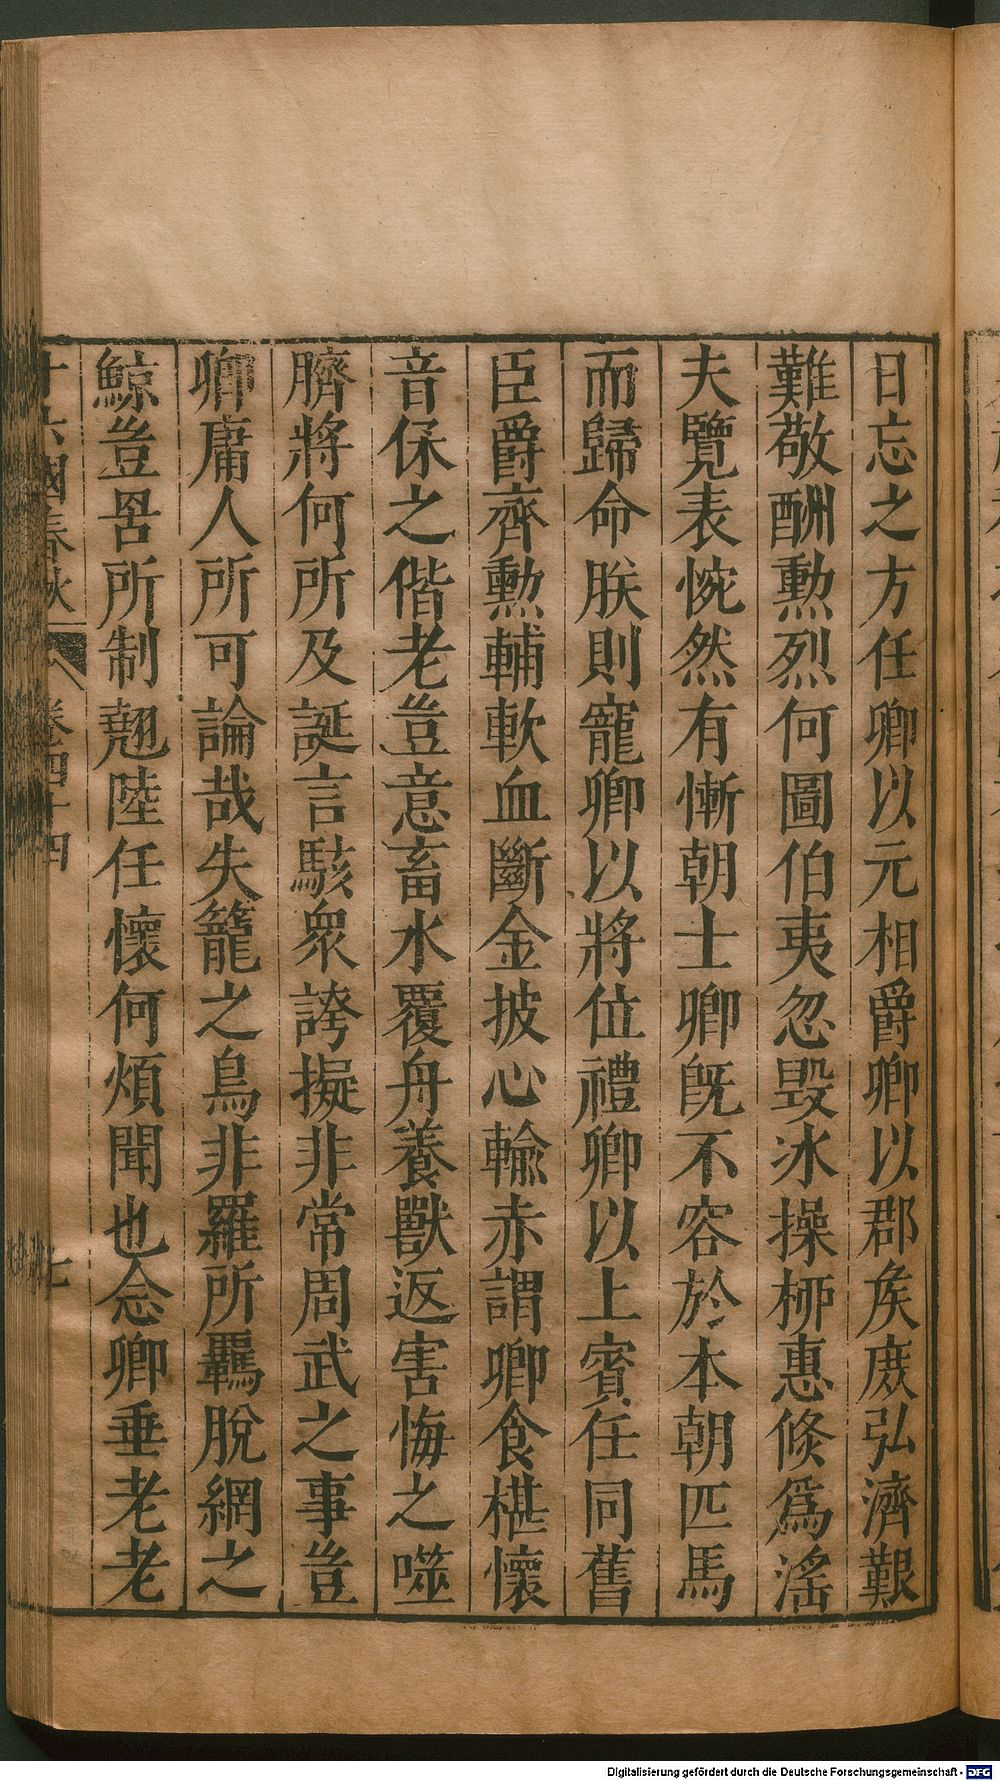 日忘之方任卿以元相爵卿以郡矦庶弘濟艱
難敬酬勲烈何圖伯夷忽毀冰操柳惠倐爲滛
夫覽表惋然有慚朝士卿旣不容於本朝匹馬
而歸命朕則寵卿以將位禮卿以上賓任同舊
臣爵齊勲輔軟血斷金披心輸赤謂卿食椹懷
音保之偕老豈意畜水覆舟養獸返害悔之噬
臍將何所及誕言駭衆誇擬非常周武之事豈
卿庸人所可論哉失籠之鳥非羅所羈脫網之
鯨豈罟所制翹陸任懷何煩聞也念卿垂老老
十六國春秋 卷四十四 七
Digitalisierung gefördert durch die Deutsche Forschungsgemeinschaft - DFG